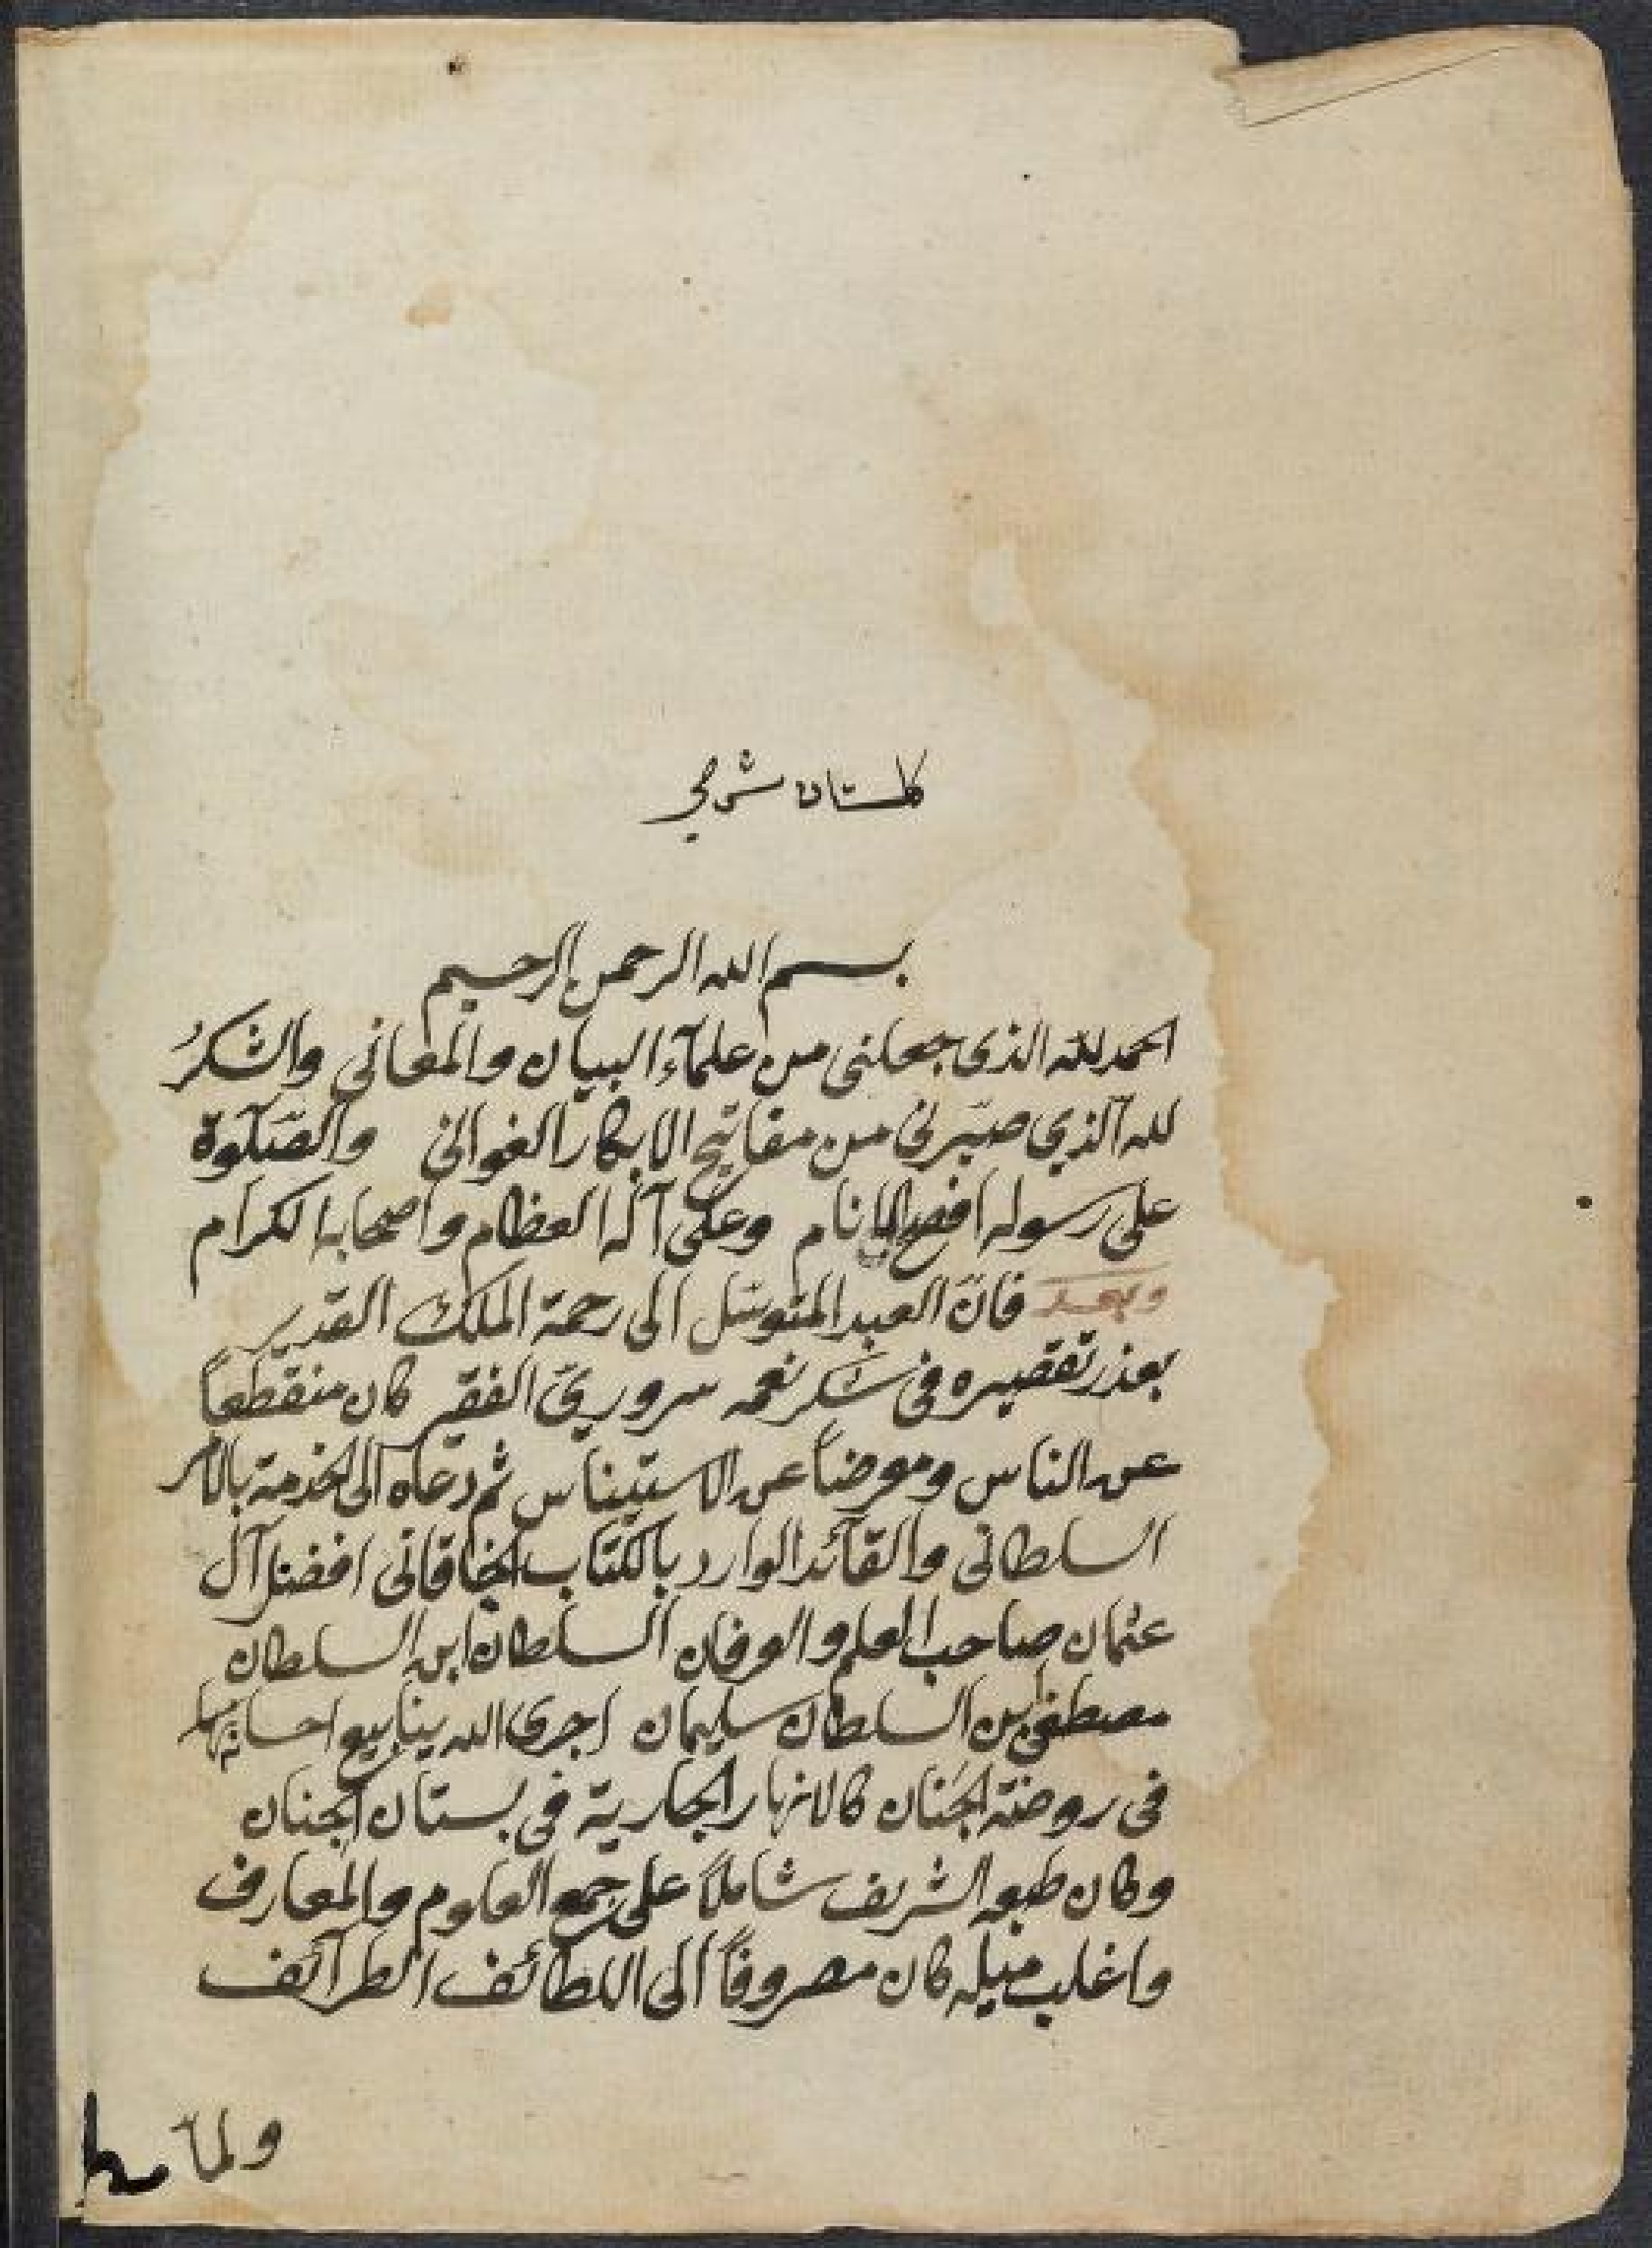 كلستان شرحي
بسم الله الرحمن الرحيم
الحمد لله الذى جعلنى من علمآء البيان والمعانى والشكرُ
لله الذي صيّرنى من مفاتيح الابكار الغوانى والصّلوة
على رسوله افصح الانام وعلى آله العظام واصحابه الكرام
وبعد فانّ العبد المتوسّل الى رحمة الملك القدير
بعذر تقصيره فى شكر نعمه سروريّ الفقير كان منقطعاً
عن الناس ومعرضاً عن الاستيناس ثم دعاه الى الخدمة بالامر
السلطانى والقآئد الوارد بالكتاب الخاقانى افضل آل
عثمان صاحب العلم والعرفان السلطان ابن السلطان
مصطفى بن السلطان سليمان اجرى الله ينابيع احسانهما
فى روضة الجَنان كالانهار الجارية فى بستان الجنان
وكان طبعه الشريف شاملاً على جمع العلوم والمعارف
واغلب ميله كان مصروفاً الى اللطائف الطرآئف
ولمّا